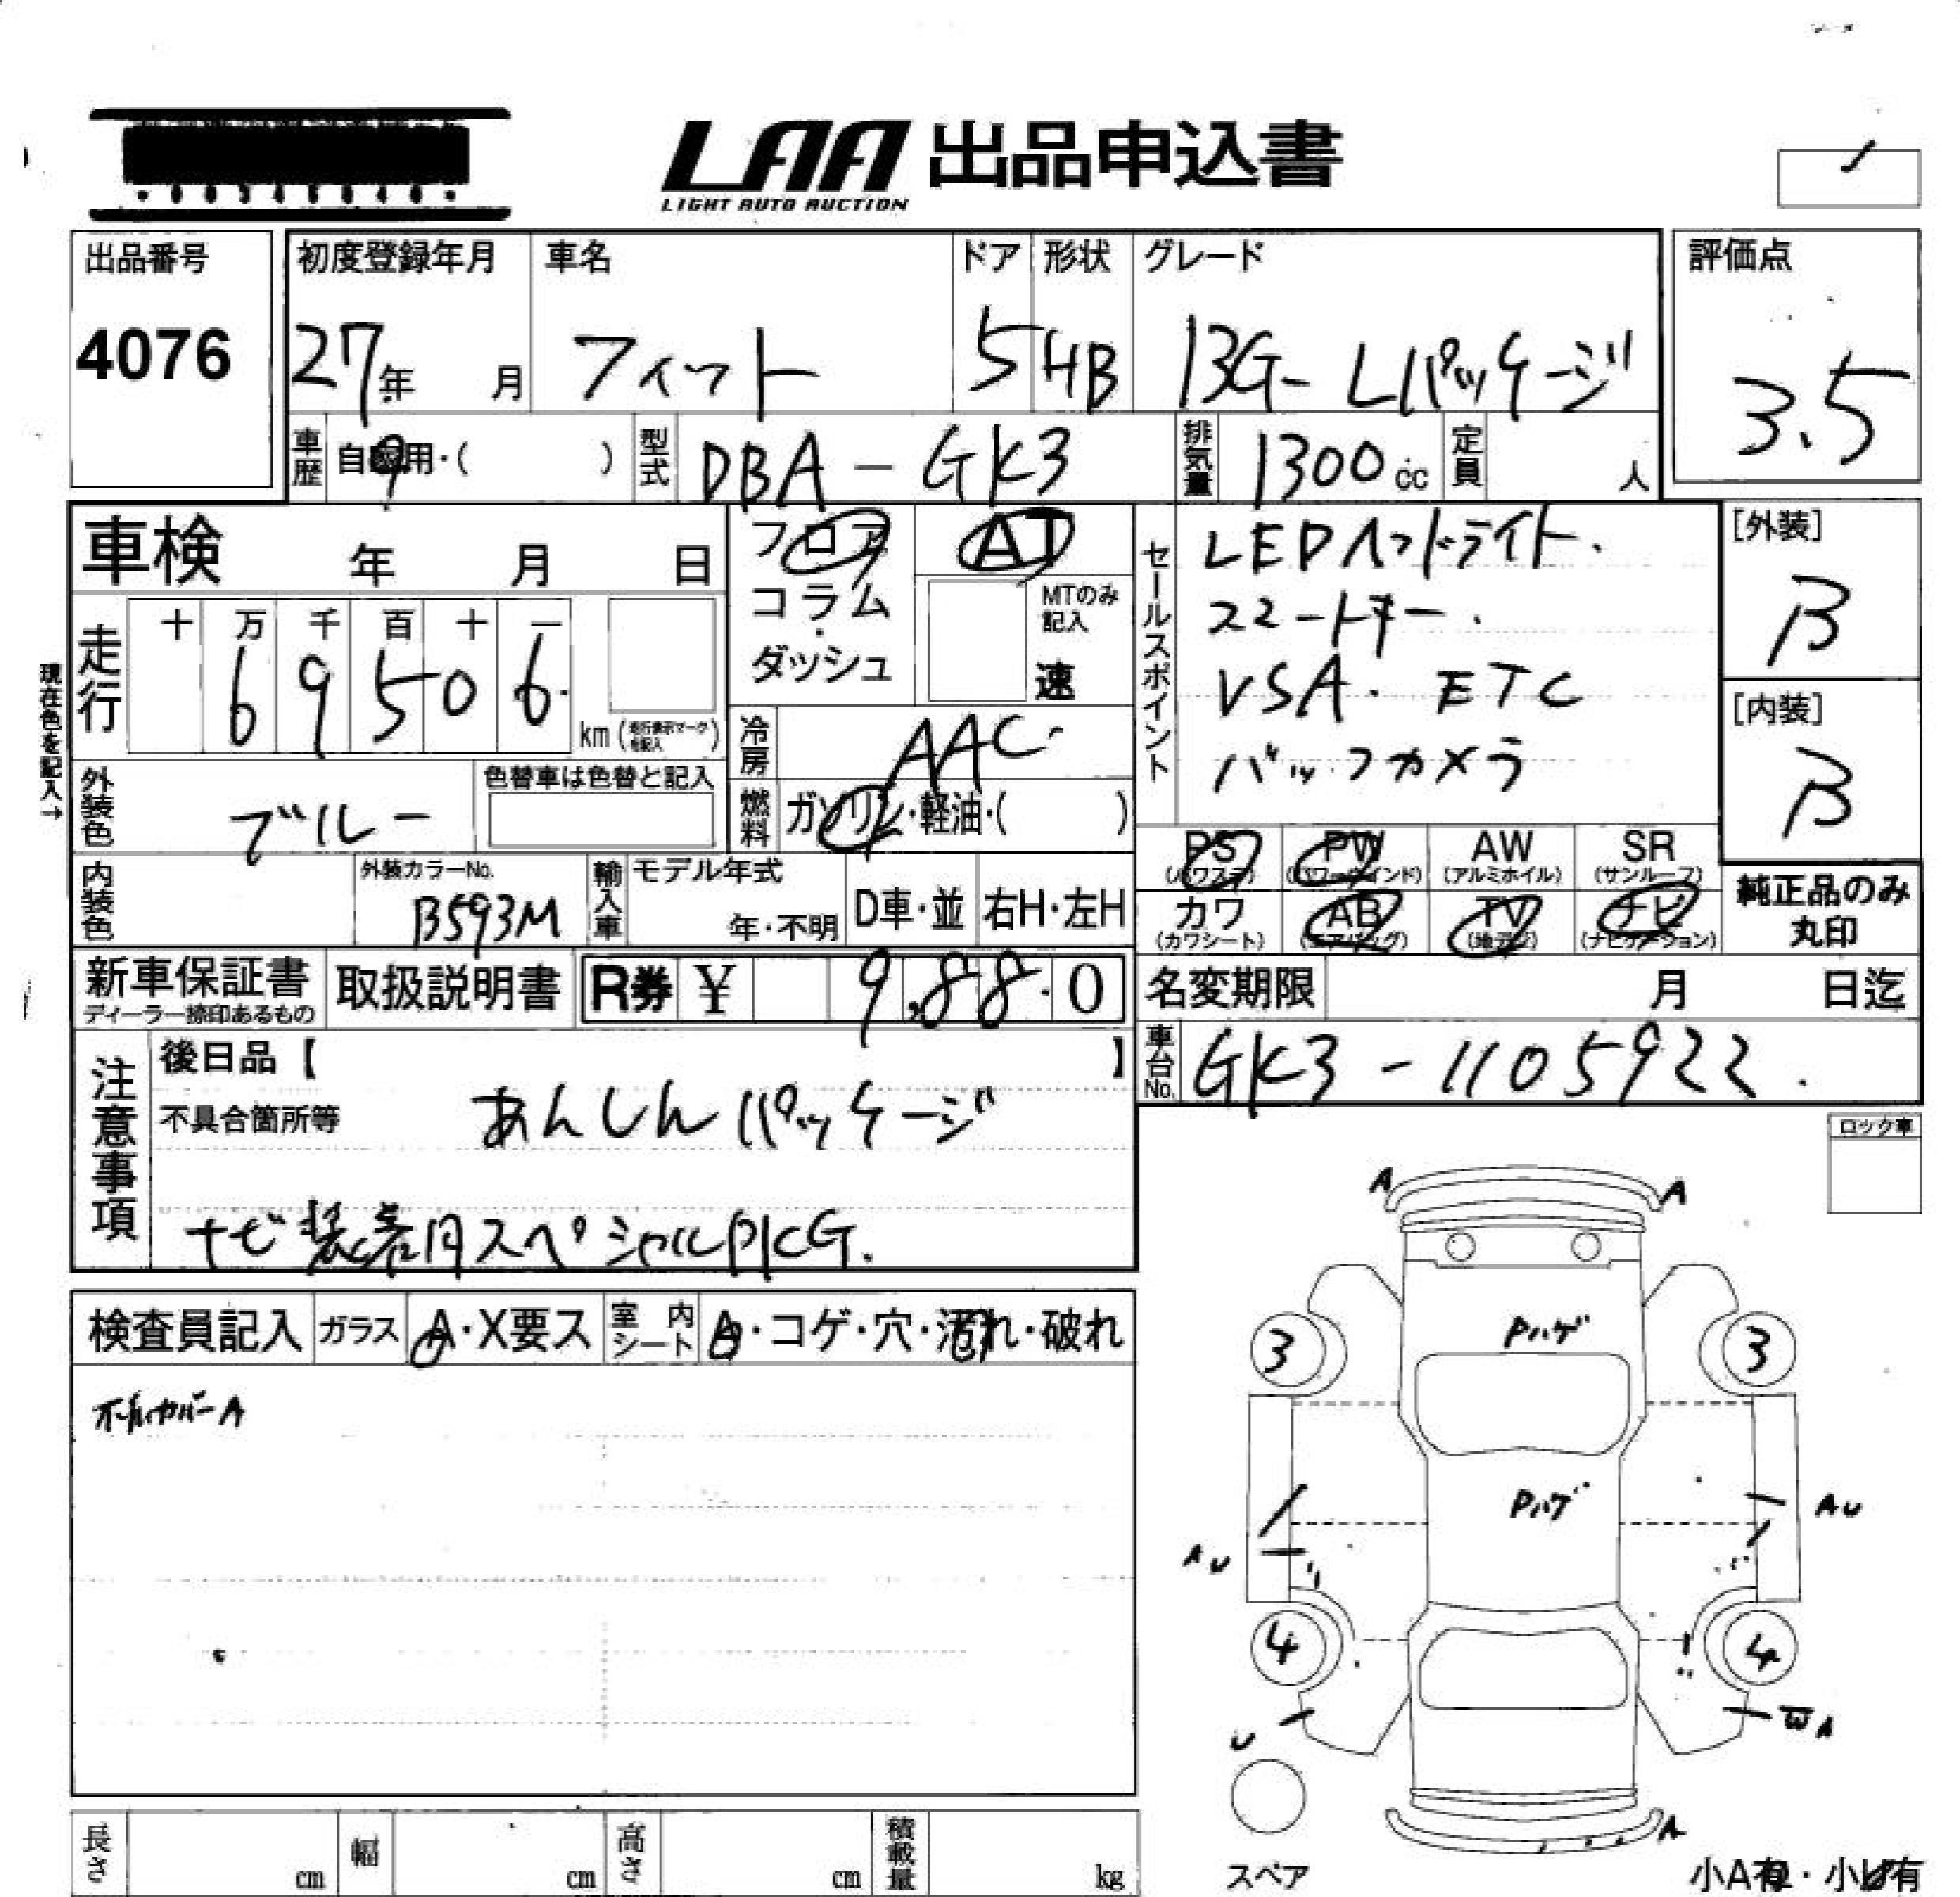 LAA 出品申込書
LIGHT AUTO AUCTION
出品番号
4076
初度登録年月
27年 9月
車名
フィット
ドア
5
形状
HB
グレード
13G-Lパッケージ
評価点
3.5
車歴
自家用・( )
型式
DBA-GK3
排気量
1300 cc
定員
人
車検 年 月 日
フロア
コラム
・
ダッシュ
AT
MTのみ記入
速
セールスポイント
LEDヘッドライト.
スマートキー.
VSA. ETC
バックカメラ
[外装]
B
[内装]
B
現在色を記入→
走行
十 万 千 百 十 一
6 9 5 0 6
km (走行表示マークを記入)
冷房
AAC
燃料
ガソリン・軽油・( )
外装色
ブルー
色替車は色替と記入
内装色
外装カラーNo.
B593M
輸入車
モデル年式
年・不明
D車・並
右H・左H
PS
(パワステ)
PW
(パワーウインド)
AW
(アルミホイル)
SR
(サンルーフ)
カワ
(カワシート)
AB
(エアバッグ)
TV
(地デジ)
ナビ
(ナビゲーション)
純正品のみ
丸印
新車保証書
ディーラー捺印あるもの
取扱説明書
R券 ¥ 9,880
名変期限 月 日迄
車台No.
GK3-1105922.
注意事項
後日品【 】
不具合箇所等
あんしんパッケージ
ナビ装着用スペシャルPKG.
ロック車
検査員記入
ガラス
A・X要ス
室内シート
・コゲ・穴・汚れ・破れ
カバーA
A A
3 3
Pハゲ
Pハゲ
AU
AU
4 4
U
WA
A
スペア
小A有・小U有
長さ cm
幅 cm
高さ cm
積載量 kg